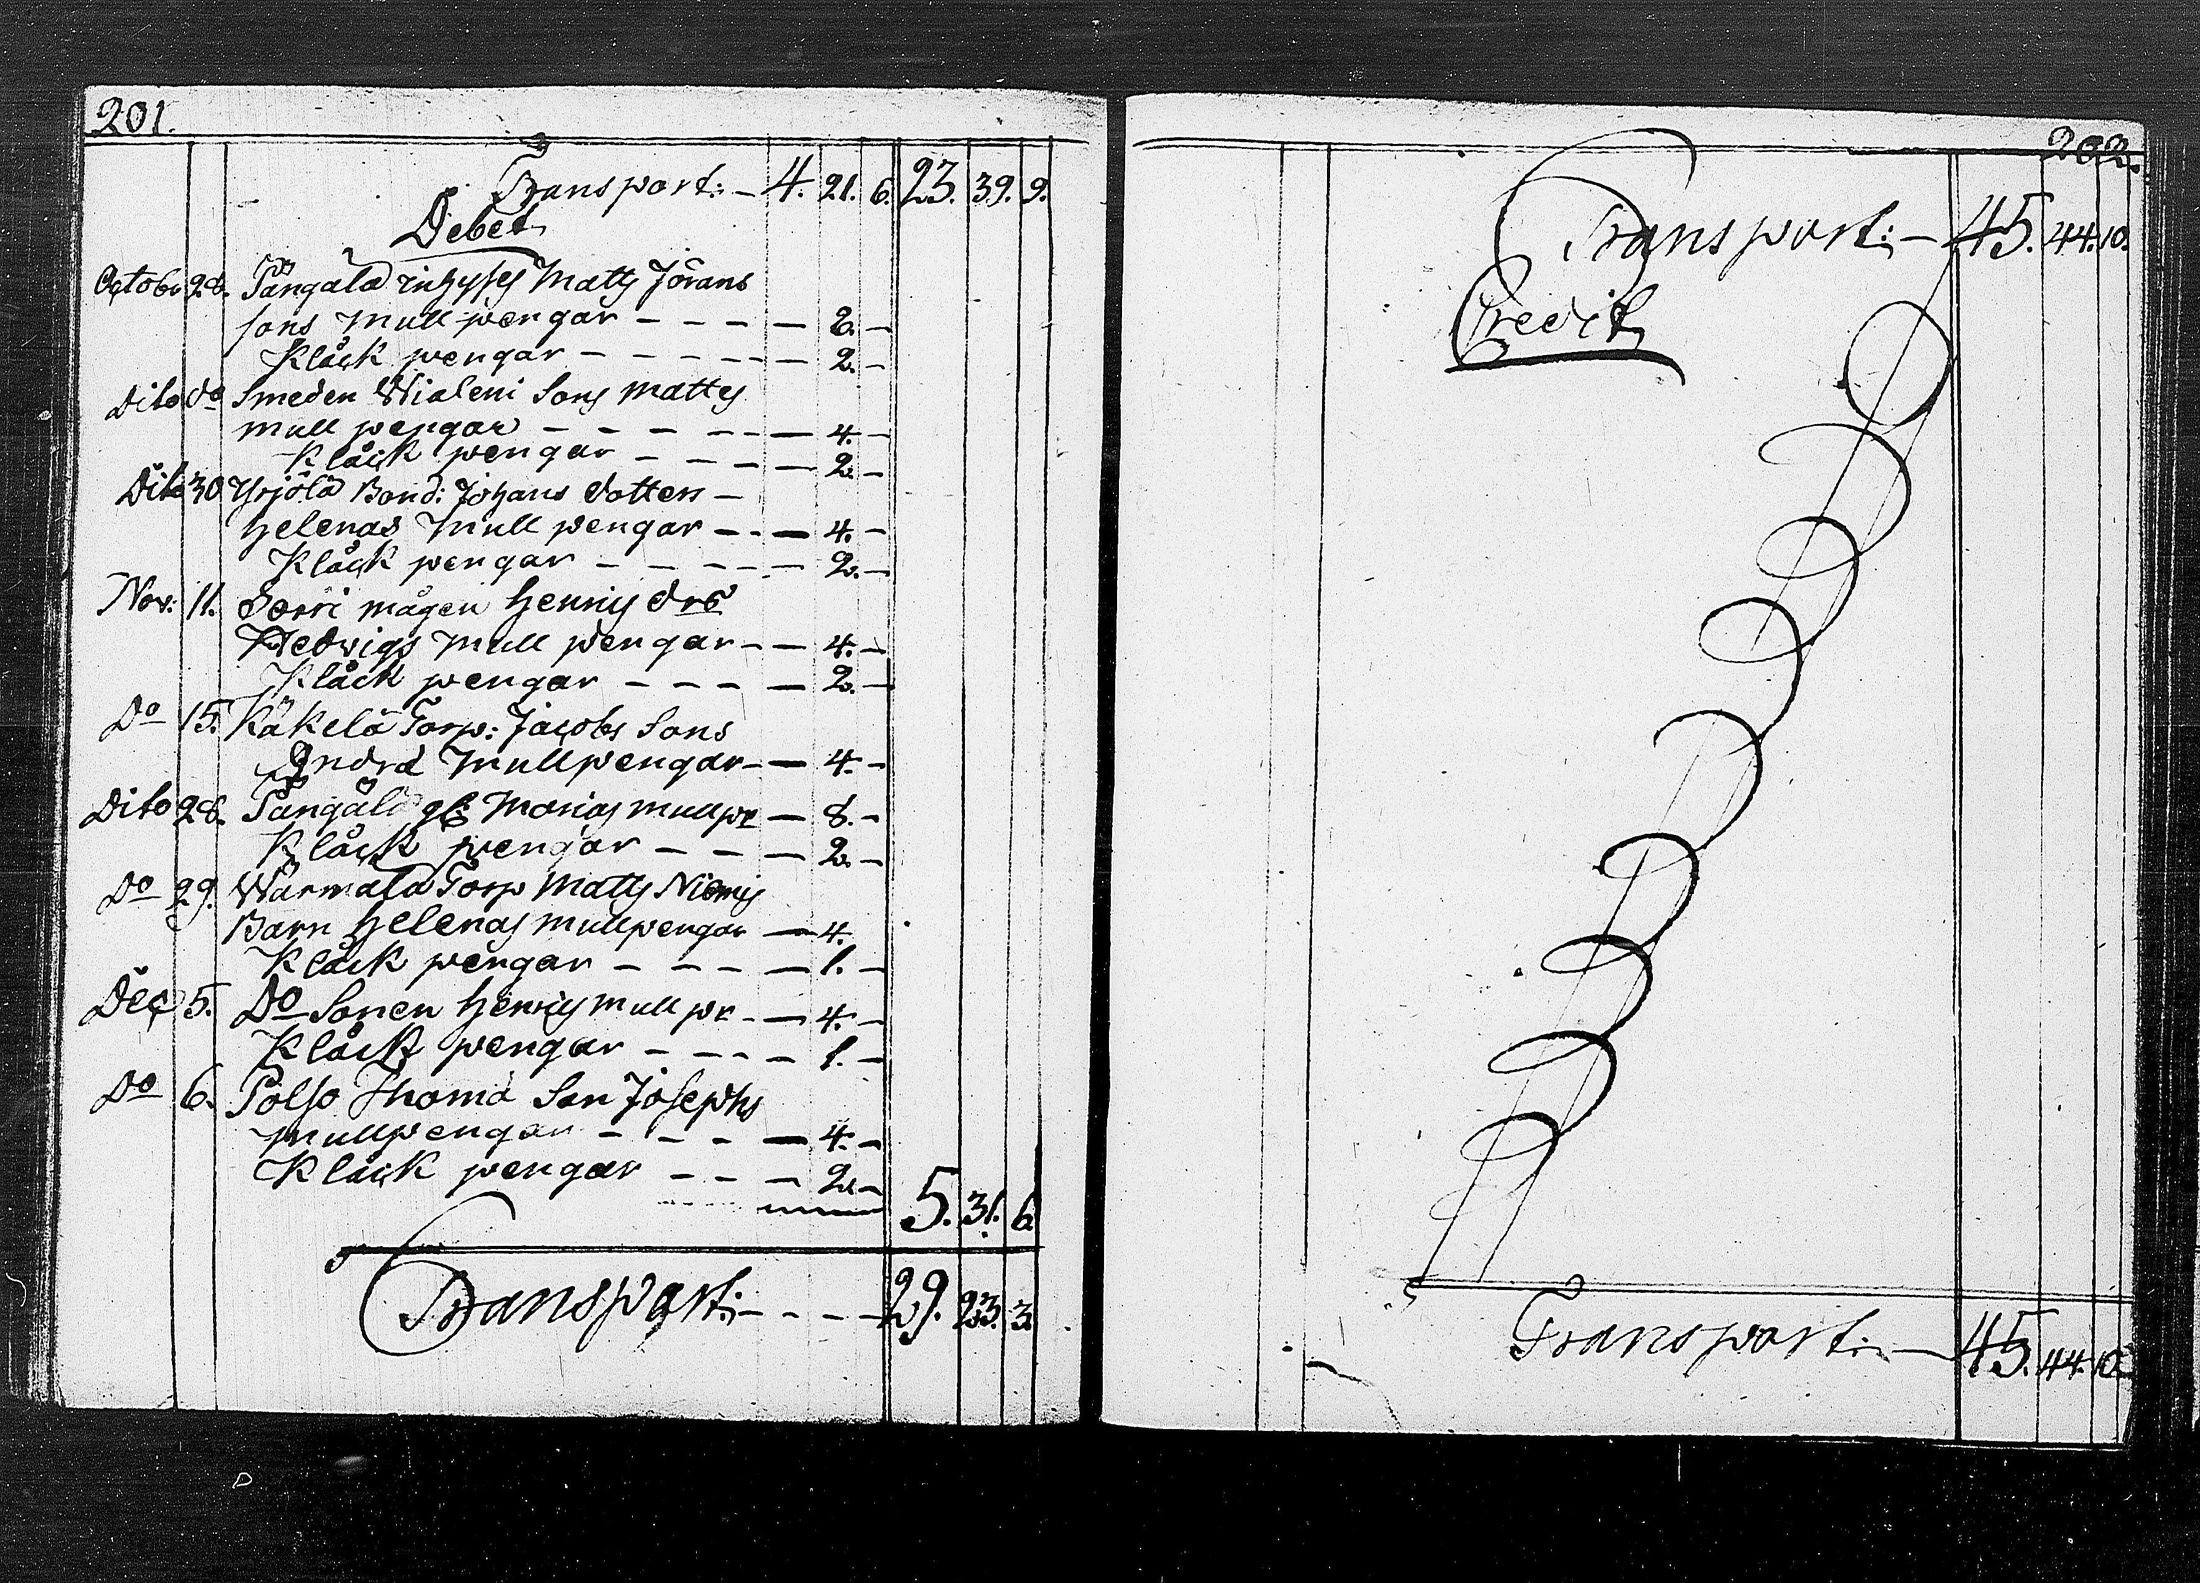 201.
Transport: — 4. 21. 6. 23. 39. 9.
Debet
October 28. Pångala inhyses Matts Jörans
sons Mull pengar — — — — 8. —
Klåck pengar — — — — — 2. —
Dito do Smeden Wialeni Sons Mattes
mull pengar — — — — — 4. —
Klåck pengar — — — — 2. —
Dito 30 Yrjölä Bond: Johans dotters —
Helenas Mull pengar — — — 4. —
Klåck pengar — — — — — 2. —
Nov: 11. Sorri mågen Henrics drs
Hedwigs Mull pengar — — 4. —
Klåck pengar — — — — 2. —
Do 15. Käkelä Torp: Jacobs Sons
Andra Mullpengar — — 4. —
Dito 28. Marias mullpr — 8. —
Klåck pengar — — — 2. —
Do 29. Wärmälä Torp Matts Niemis
Barn Helenas mullpengar — 4.
Klåck pengar — — — — 1. —
Dec 5. Do Sonen Henrics Mull pr — — 4. —
Klåck pengar — — — — 1. —
Do 6. Polso Thoma Son Josephs
mullpengar — — — — 4. —
Klåck pengar — — — 2. —
5. 31. 6
Transport: — — — — 29. 23. 3.
202.
Transport: — 45. 44. 10.
Credit
Transport: — 45. 44. 10.